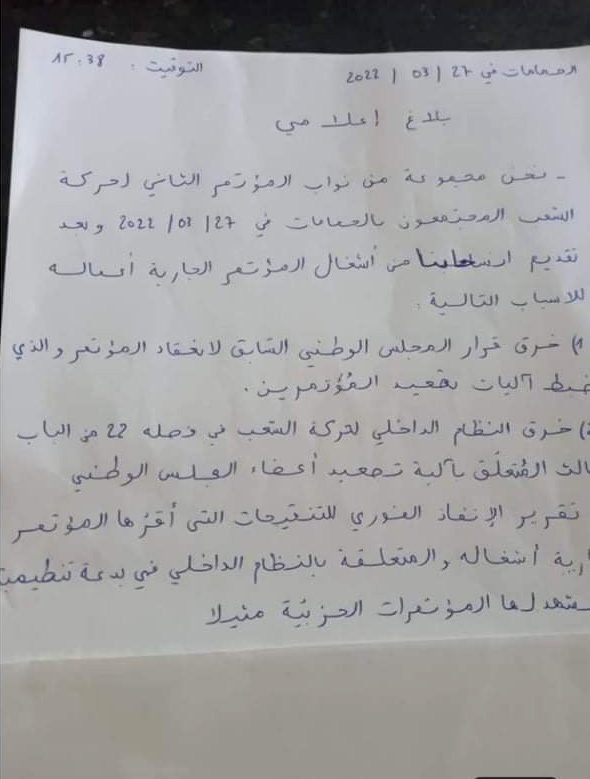 الحمامات في 27 / 03 / 2022 التوقيت : 15:38
بلاغ إعلامي
- نحن مجموعة من نواب المؤتمر الثاني لحركة
الشعب المجتمعون بالحمامات في 27 / 03 / 2022 وبعد
تقديم انسحابنا من أشغال المؤتمر الجارية أعماله
للاسباب التالية :
1) خرق قرار المجلس الوطني السابق لانعقاد المؤتمر والذي
ضبط آليات تصعيد المُؤتمرين.
2) خرق النظام الداخلي لحركة الشعب في فصله 22 من الباب
الث المُتعلّق بآلية تصعيد أعضاء المجلس الوطني
تقرير الإنفاذ الفوري للتنقيحات التي أقرّها المؤتمر
ارية أشغاله والمتعلقة بالنظام الداخلي في بدعة تنظيمية
تشهد لها المؤتمرات الحزبيّة مثيلا